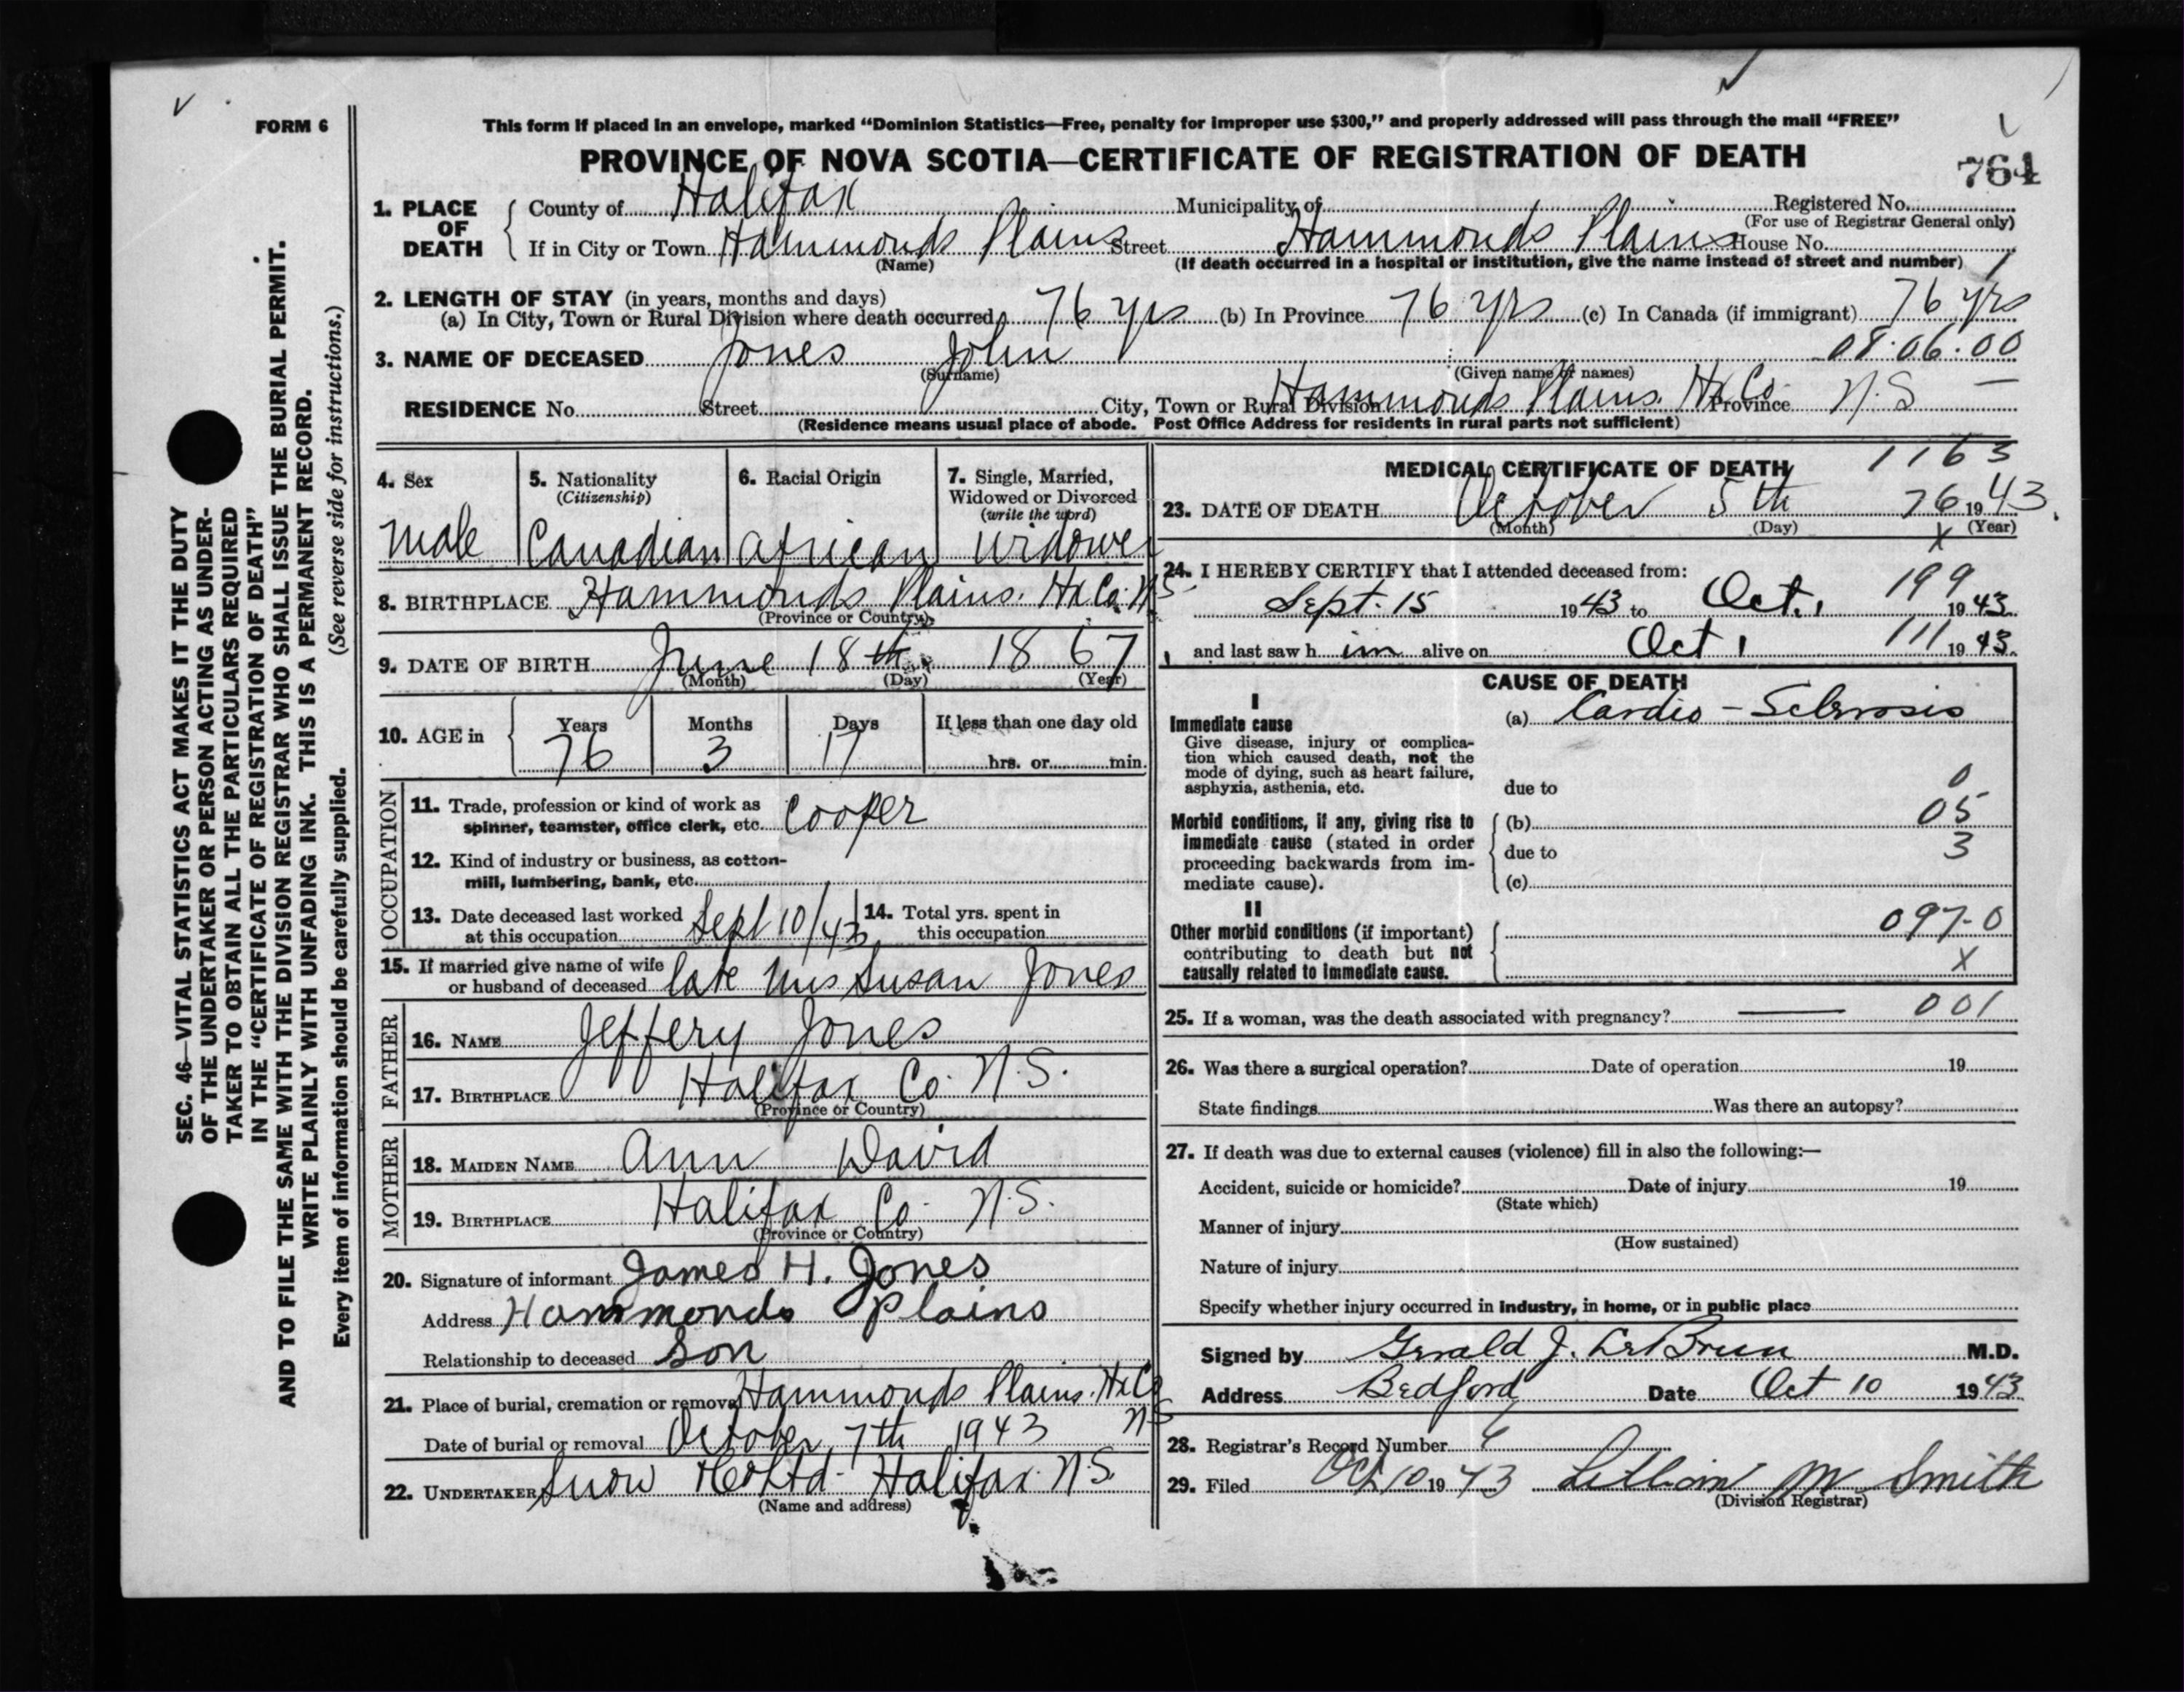 FORM 6
This form if placed in an envelope, marked “Dominion Statistics—Free, penalty for improper use $300,” and properly addressed will pass through the mail “FREE”
PROVINCE OF NOVA SCOTIA—CERTIFICATE OF REGISTRATION OF DEATH
764
1. PLACE OF DEATH
County of Halifax Municipality of Registered No.
(For use of Registrar General only)
If in City or Town Hammonds Plains Street Hammonds Plains House No.
(Name) (If death occurred in a hospital or institution, give the name instead of street and number)
2. LENGTH OF STAY (in years, months and days)
(a) In City, Town or Rural Division where death occurred 76 yrs (b) In Province 76 yrs (c) In Canada (if immigrant) 76 yrs
3. NAME OF DECEASED Jones John 08.06.00
(Surname) (Given name or names)
RESIDENCE No. Street City, Town or Rural Division Hammonds Plains. Hx Co. Province N.S —
(Residence means usual place of abode. Post Office Address for residents in rural parts not sufficient)
SEC. 46—VITAL STATISTICS ACT MAKES IT THE DUTY
OF THE UNDERTAKER OR PERSON ACTING AS UNDER-
TAKER TO OBTAIN ALL THE PARTICULARS REQUIRED
IN THE “CERTIFICATE OF REGISTRATION OF DEATH”
AND TO FILE THE SAME WITH THE DIVISION REGISTRAR WHO SHALL ISSUE THE BURIAL PERMIT.
WRITE PLAINLY WITH UNFADING INK. THIS IS A PERMANENT RECORD.
Every item of information should be carefully supplied. (See reverse side for instructions.)
4. Sex
5. Nationality
(Citizenship)
6. Racial Origin
7. Single, Married,
Widowed or Divorced
(write the word)
Male Canadian African Widower
8. BIRTHPLACE Hammonds Plains. Hx Co. NS
(Province or Country)
9. DATE OF BIRTH June 18th 1867
(Month) (Day) (Year)
10. AGE in Years Months Days If less than one day old
76 3 17 hrs. or min.
OCCUPATION
11. Trade, profession or kind of work as
spinner, teamster, office clerk, etc. Cooper
12. Kind of industry or business, as cotton-
mill, lumbering, bank, etc.
13. Date deceased last worked
at this occupation Sept 10/43
14. Total yrs. spent in
this occupation
15. If married give name of wife
or husband of deceased late Mrs Susan Jones
FATHER
16. NAME Jeffery Jones
17. BIRTHPLACE Halifax Co. N.S.
(Province or Country)
MOTHER
18. MAIDEN NAME Ann David
19. BIRTHPLACE Halifax Co. N.S.
(Province or Country)
20. Signature of informant James H. Jones
Address Hammonds Plains
Relationship to deceased Son
21. Place of burial, cremation or removal Hammonds Plains. Hx Co
NS
Date of burial or removal October 7th 1943
22. UNDERTAKER Snow Ltd. Halifax N.S.
(Name and address)
MEDICAL CERTIFICATE OF DEATH 1163
23. DATE OF DEATH October 5th 76 1943.
(Month) (Day) (Year)
X
24. I HEREBY CERTIFY that I attended deceased from: 199
Sept. 15 1943 to Oct. 1 1943
and last saw him alive on Oct 1 111 1943.
CAUSE OF DEATH
I
Immediate cause (a) Cardio-Sclerosis
Give disease, injury or complica-
tion which caused death, not the
mode of dying, such as heart failure,
asphyxia, asthenia, etc. due to 0
Morbid conditions, if any, giving rise to
immediate cause (stated in order
proceeding backwards from im-
mediate cause).
(b) 05
due to 3
(c)
II
Other morbid conditions (if important)
contributing to death but not
causally related to immediate cause.
097-0
X
25. If a woman, was the death associated with pregnancy? — 001
26. Was there a surgical operation? Date of operation 19
State findings Was there an autopsy?
27. If death was due to external causes (violence) fill in also the following:—
Accident, suicide or homicide? Date of injury 19
(State which)
Manner of injury
(How sustained)
Nature of injury
Specify whether injury occurred in industry, in home, or in public place
Signed by Gerald J. LeBrun M.D.
Address Bedford Date Oct 10 1943
28. Registrar's Record Number
29. Filed Oct 10 1943 Lillian M Smith
(Division Registrar)